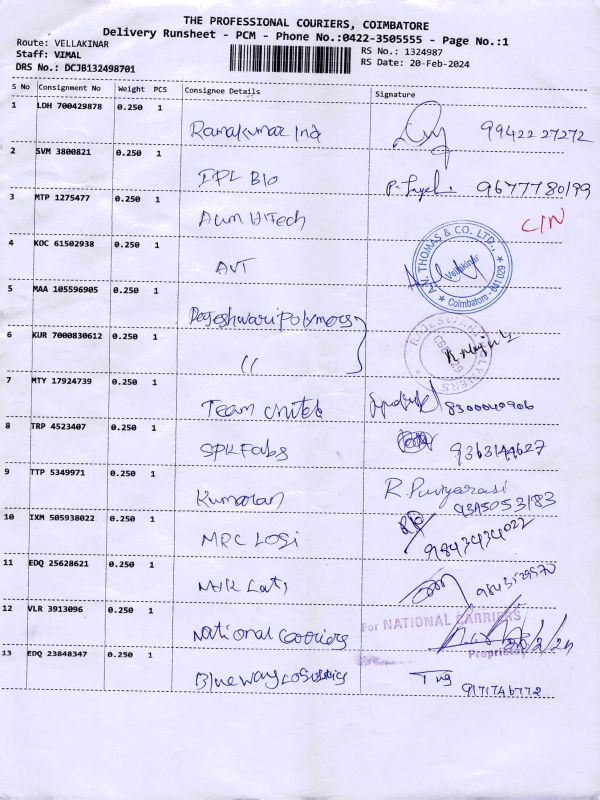 THE PROFESSIONAL COURIERS, COIMBATORE
Delivery Runsheet - PCM - Phone No.:0422-3505555 - Page No.:1
Route: VELLAKINAR
Staff: VIMAL
DRS No.: DCJB132498701
RS No.: 1324987
RS Date: 20-Feb-2024
S No Consignment No Weight PCS Consignee Details Signature
1 LDH 700429878 0.250 1
Ramakumar Ind 99422 27272
2 SVM 3800821 0.250 1
IPL Bio 9677780199
3 MTP 1275477 0.250 1
Hitech C/N
4 KOC 61502938 0.250 1
AVT
A.V. THOMAS & CO. LTD.,
Vellakinar
Coimbatore - 641 029
5 MAA 105596905 0.250 1
Rajeshwari Polymers
6 KUR 7000830612 0.250 1
11
7 MTY 17924739 0.250 1
Team United 8300040906
8 TRP 4523407 0.250 1
SPK Fabs 9363144627
9 TTP 5349971 0.250 1
Kumaran R. Puviyarasi
9345053183
10 IXM 505938022 0.250 1
MRC Logi 9843434022
11 EDQ 25628621 0.250 1
12 VLR 3913096 0.250 1
National Carriers
For NATIONAL CARRIERS
Proprietor
13 EDQ 23848347 0.250 1
Blueway Logistics 9171746772